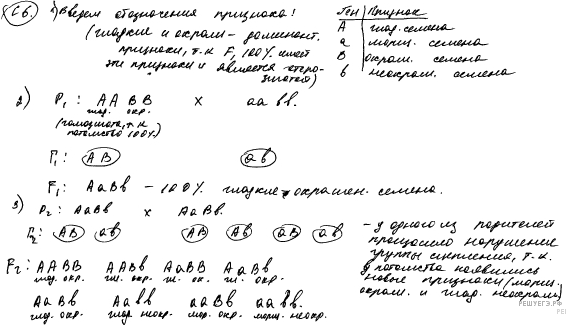 С6. 1) Введем обозначения признака!
(гладкие и окраш - доминант.
признаки, т.к F1 100% имеет
эти признаки и является гетеро-
зиготой)
Ген | Признак
A | глад. семена
a | морщ. семена
B | окраш. семена
b | неокраш. семена
2) P1: AA BB x aa bb.
глад. окр.
(гомозигота, т.к
потомство 100%)
Г1: AB ab
F1: AaBb - 100% гладкие окрашен. семена.
3) P2: AaBb x AaBb.
Г2: AB ab AB Ab aB ab
- у одного из родителей
произошло нарушение
группы сцепления, т.к.
у потомства появились
новые признаки (морщ.
окраш. и глад. неокраш.)
F2: AABB AABb AaBB AaBb
глад. окр. гл. окр. гл. ок. гл. окр.
AaBb Aabb aaBb aabb.
глад. окр. глад. неокр. морщ. окр. морщ. неокр.
РЕШУЕГЭ.РФ